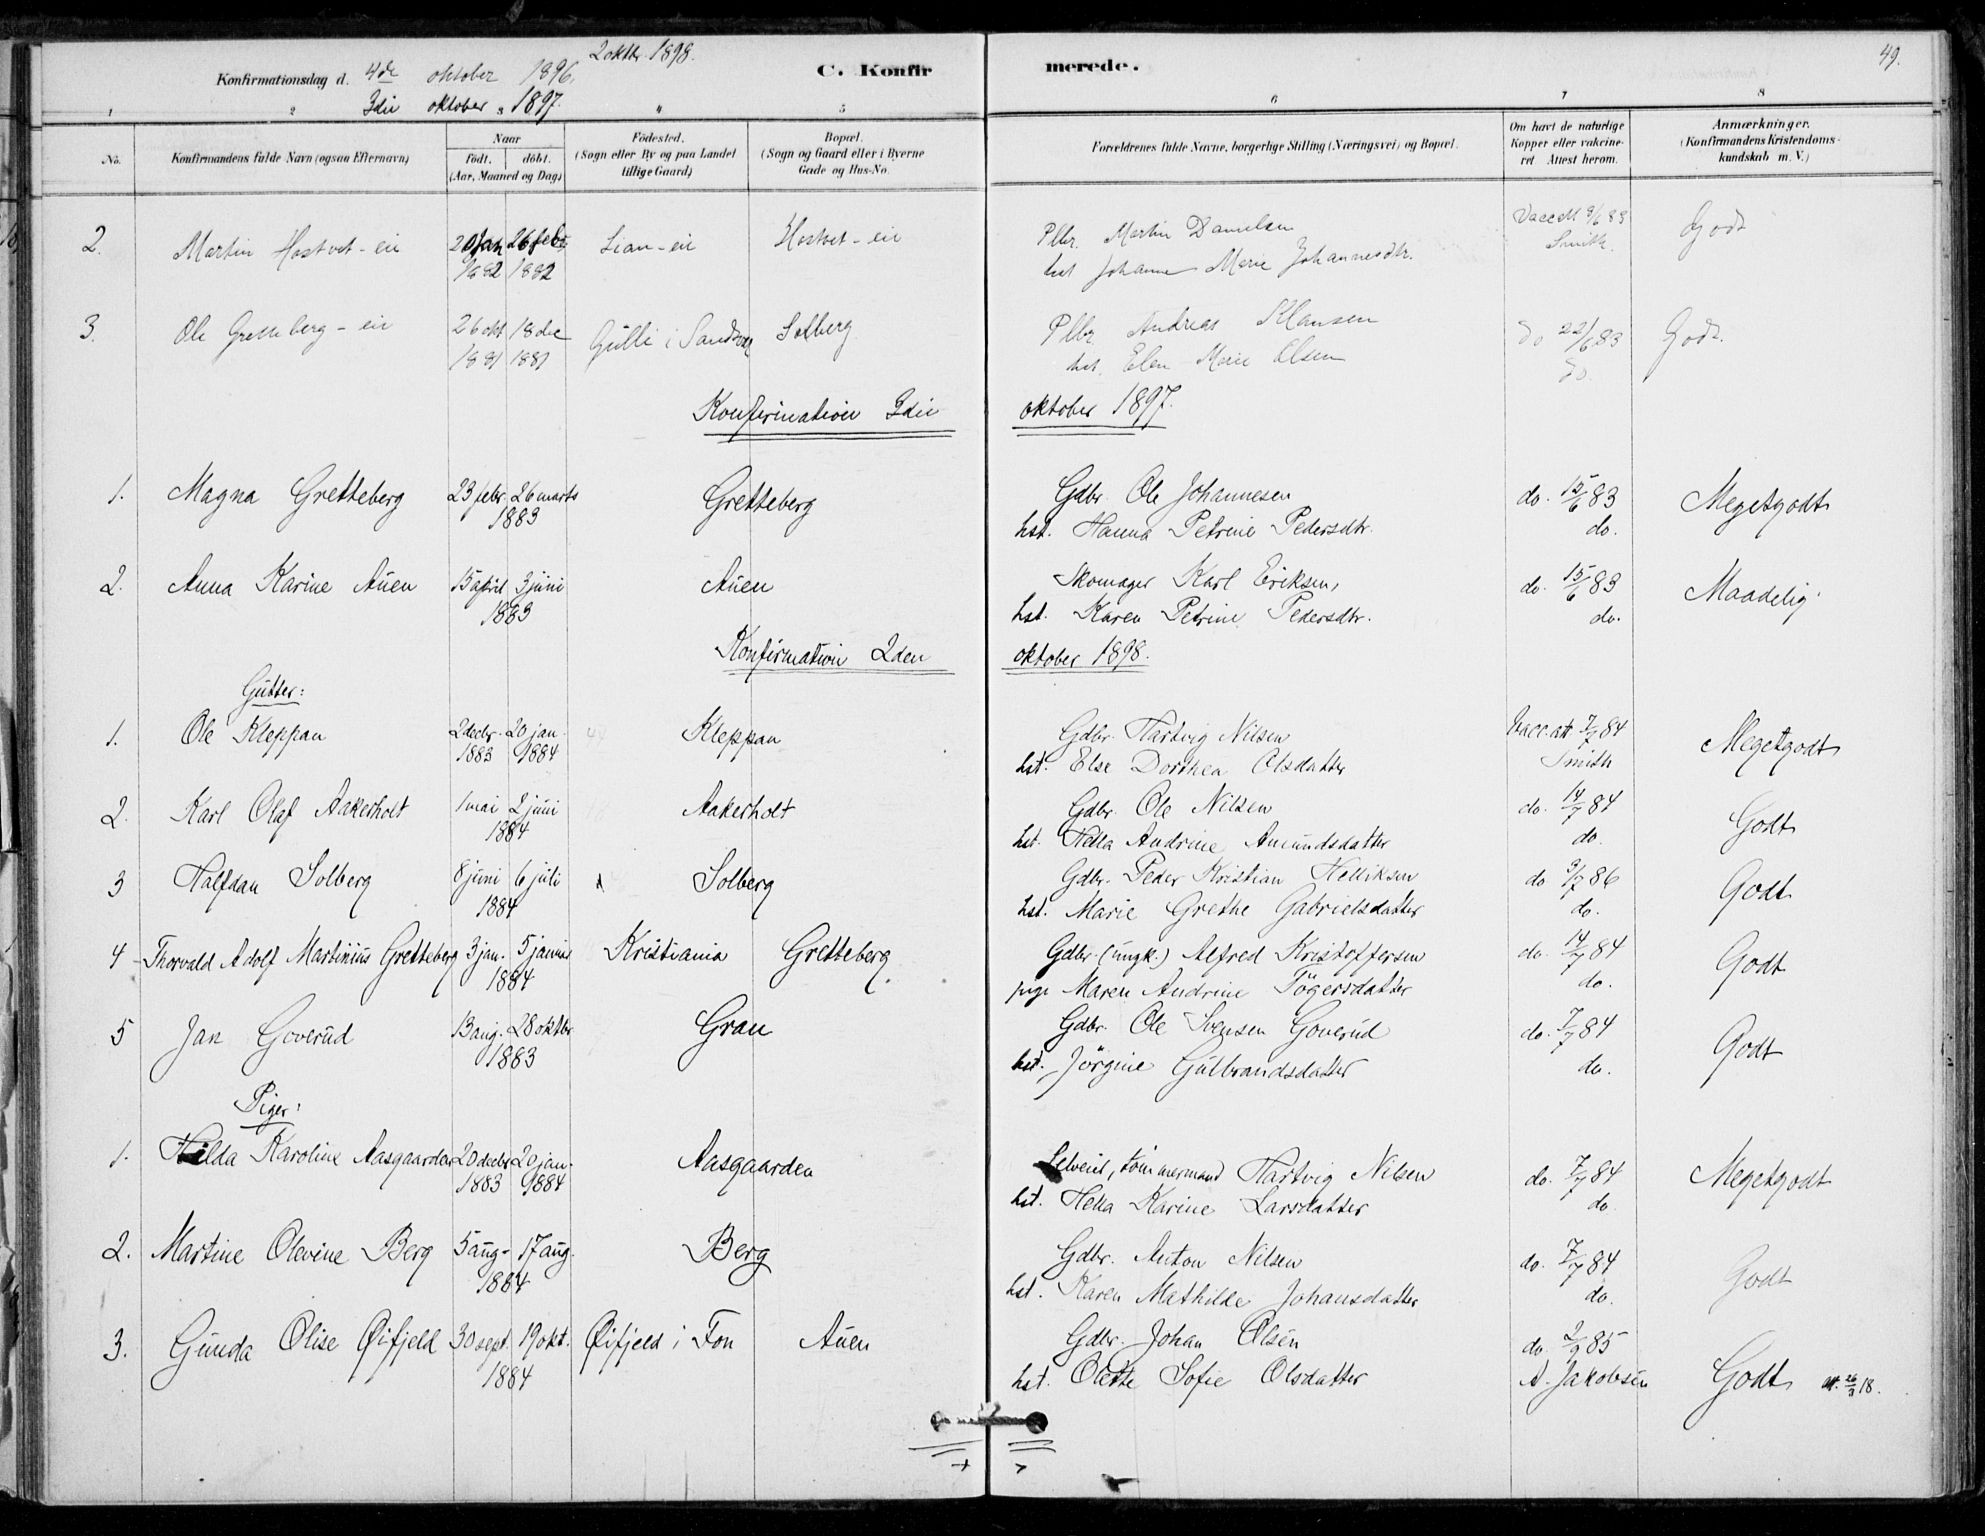 2 oktbr. 1898. 49.
Konfirmationsdag d. 4de oktober 1896. C. Konfirmerede.
3die oktober 1897.
1 2 3 4 5 6 7 8
No. Konfirmandens fulde Navn (ogsaa Efternavn) Naar födt. döbt. (Aar, Maaned og Dag) Födested. (Sogn eller By og paa Landet tillige Gaard) Bopæl. (Sogn og Gaard eller i Byerne Gade og Hus-No. Forældrenes fulde Navne, borgerlige Stilling (Næringsvei) og Bopæl. Om havt de naturlige Kopper eller vakcineret Attest herom. Anmærkninger. (Konfirmandens Kristendomskundskab m. V.)
2. Martin Hostvet-eie 20 jan 26 febr Lian-eie Hostvet-eie Plbr. Martin Danielsen Vacc att 9/6 83 Godt
1882 1882 hst Johanne Marie Johannesdtr. Smith.
3. Ole Gretteberg-eie 26 okt 18 dec Gulli i Sandsvær Solberg Plbr. Andreas Klausen do 22/6 83 Godt.
1881 1881 hst. Elen Marie Olsen do.
Konfirmation 3die oktober 1897.
1. Magna Gretteberg 23 febr. 26 marts Gretteberg Gdbr. Ole Johannesen do. 15/6 83 Megetgodt
1883 hst. Hanna Petrine Pedersdtr. do.
2. Anna Karine Auen 15 april 3 juni Auen Skomager Karl Eriksen, do. 15/6 83 Maadelig.
1883 hst. Karen Petrine Pedersdtr. do.
Konfirmation 2den oktober 1898.
Gutter:
1. Ole Kleppan 2 decbr. 20 jan. Kleppan Gdbr. Hartvig Nilsen Vacc. att 7/7 84 Megetgodt
1883 1884 hst. Else Dorthea Olsdatter Smith
2. Karl Olaf Aakerholt 1 mai 2 juni Aakerholt Gdbr. Ole Nilsen do. 14/7 84 Godt
1884 hst. Hella Andrine Amundsdatter do.
3 Halfdan Solberg 8 juni 6 juli Solberg Gdbr. Peder Kristian Helliksen do 9/7 86 Godt
1884 hst. Marie Grethe Gabrielsdatter do.
4 Thorvald Adolf Martinius Gretteberg 3 jan. 5 januar Kristiania Gretteberg. Gdbr. (ungk.) Alfred Kristoffersen do. 14/7 84 Godt
1884 pige Maren Andrine Tögersdatter do.
5 Jan Goverud 13 aug. 28 oktbr Gran Gdbr. Ole Svensen Goverud do. 7/7 84 Godt
1883 hst. Jörgine Gulbrandsdatter do.
Piger:
1. Hilda Karoline Aasgaarden 20 decbr 20 jan. Aasgaarden Selveier, tömmermand Hartvig Nilsen do. 7/7 84 Megetgodt
1883 1884 hst. Hella Karine Larsdatter do.
2. Martine Olevine Berg 5 aug- 17 aug. Berg Gdbr. Anton Nilsen do. 7/7 84 Godt
1884 hst. Karen Mathilde Johansdatter do.
3. Gunda Olise Øifjeld 30 sept. 19 okt. Øifjeld i Fon Auen Gdbr. Johan Olsen do. 2/9 85
1884 hst. Olette Sofie Olsdatter A. Jakobsen Godt att. 26/3 18.